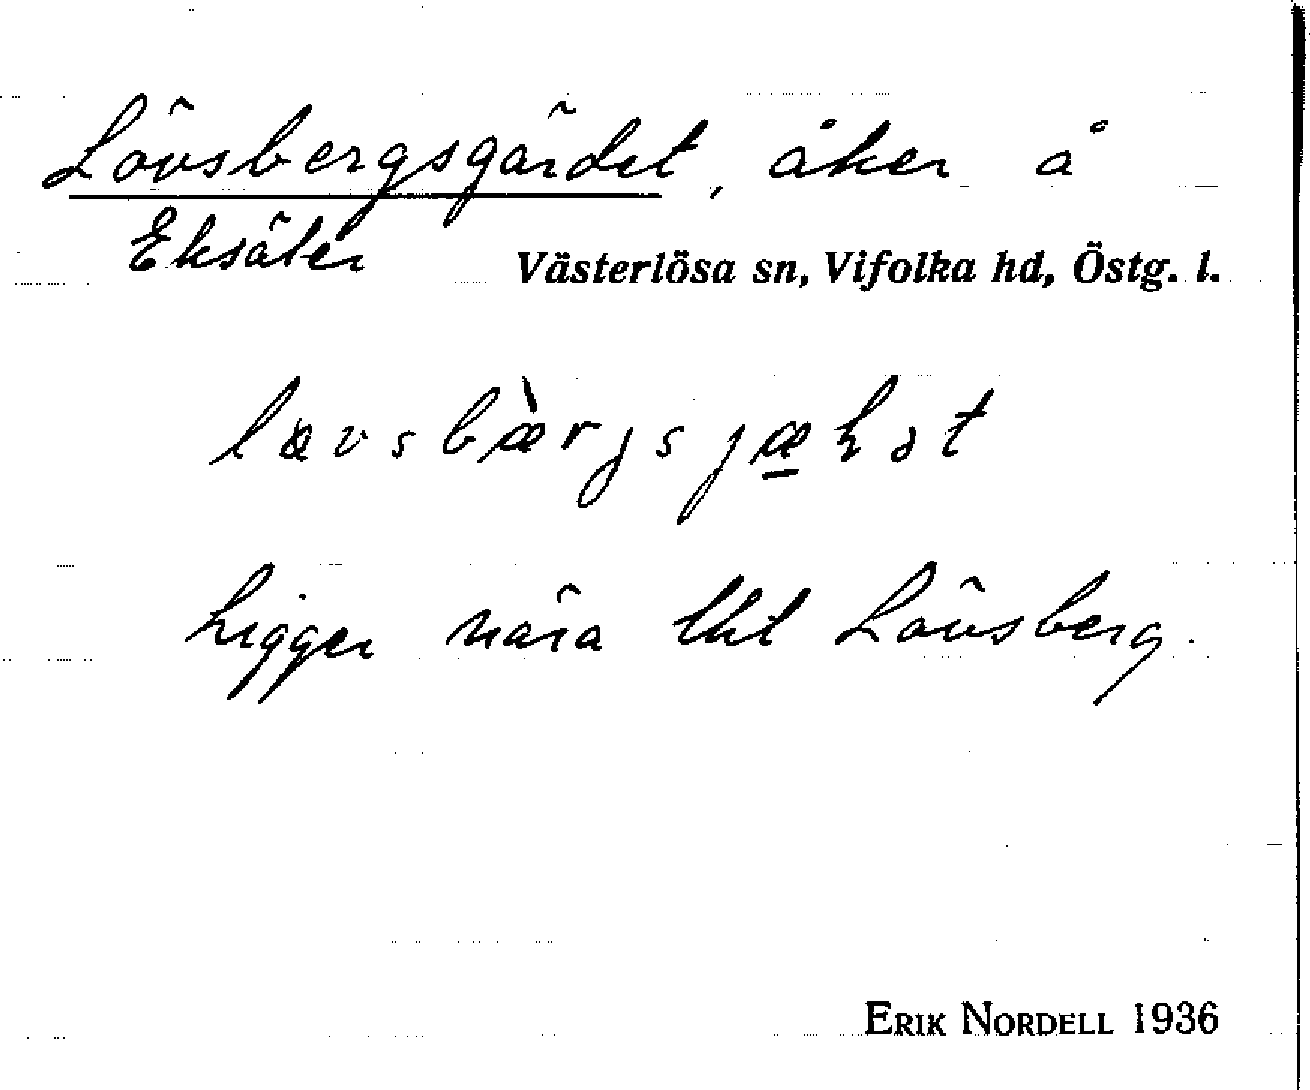 Lövsbergsgärdet, åker å
Eksäter Västerlösa sn, Vifolka hd, Östg. l.
Ligger nära till Lövsberg.
ERIK NORDELL 1936